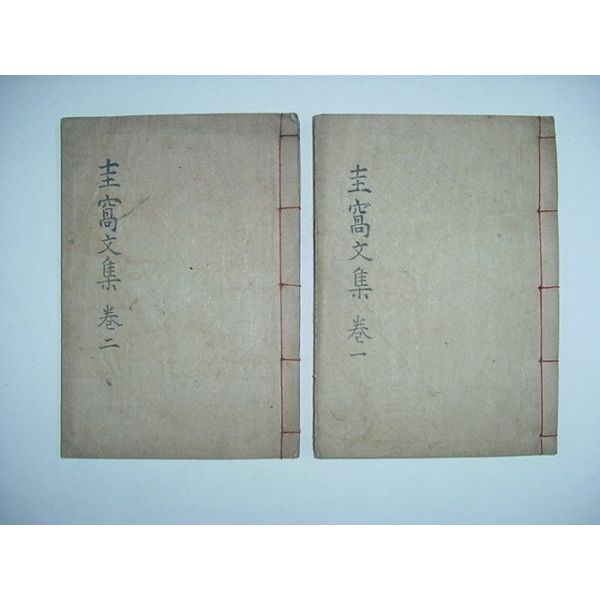 圭窩文集 卷一
圭窩文集 卷二